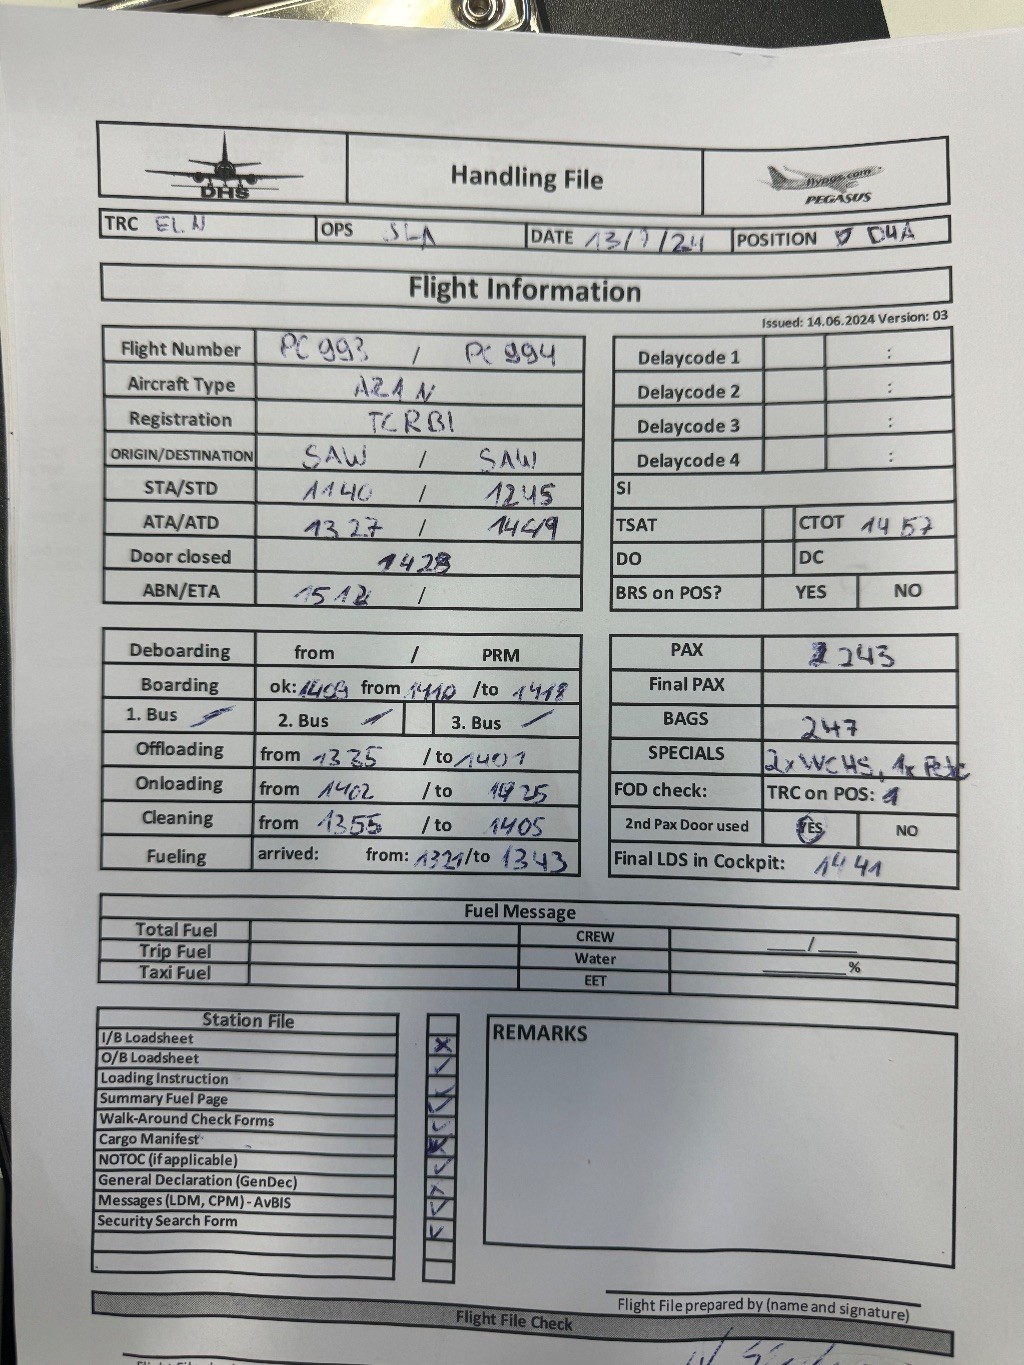 DHS
Handling File
flypgs.com
PEGASUS
TRC ELN OPS SLA DATE 13/7/24 POSITION D4A
Flight Information
Issued: 14.06.2024 Version: 03
Flight Number PC 993 / PC 994
Aircraft Type A21N
Registration TCRBI
ORIGIN/DESTINATION SAW / SAW
STA/STD 1140 / 1245
ATA/ATD 1327 / 1449
Door closed 1428
ABN/ETA 1512 /
Delaycode 1 :
Delaycode 2 :
Delaycode 3 :
Delaycode 4 :
SI
TSAT CTOT 1457
DO DC
BRS on POS? YES NO
Deboarding from / PRM
Boarding ok: 1409 from 1410 /to 1418
1. Bus 2. Bus 3. Bus
Offloading from 1335 /to 1401
Onloading from 1402 /to 1425
Cleaning from 1355 /to 1405
Fueling arrived: from: 1321/to 1343
PAX 243
Final PAX
BAGS 247
SPECIALS 2x WCHS, 1x
FOD check: TRC on POS: 1
2nd Pax Door used YES NO
Final LDS in Cockpit: 1441
Fuel Message
Total Fuel CREW ___/___
Trip Fuel Water ______%
Taxi Fuel EET
Station File
I/B Loadsheet
O/B Loadsheet
Loading Instruction
Summary Fuel Page
Walk-Around Check Forms
Cargo Manifest
NOTOC (if applicable)
General Declaration (GenDec)
Messages (LDM, CPM) - AvBIS
Security Search Form
REMARKS
Flight File prepared by (name and signature)
Flight File Check